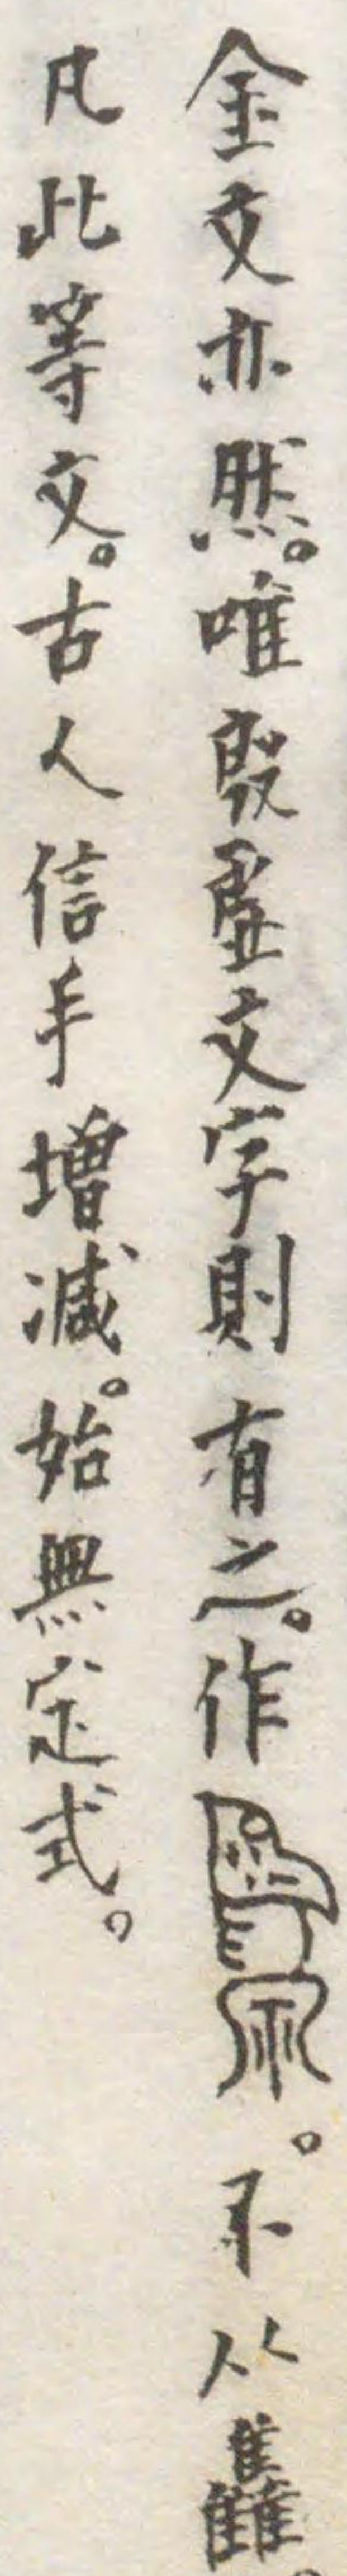 金文亦然。唯殷虛文字則有之。作。不从雥。
凡此等文。古人信手增減。始無定式。